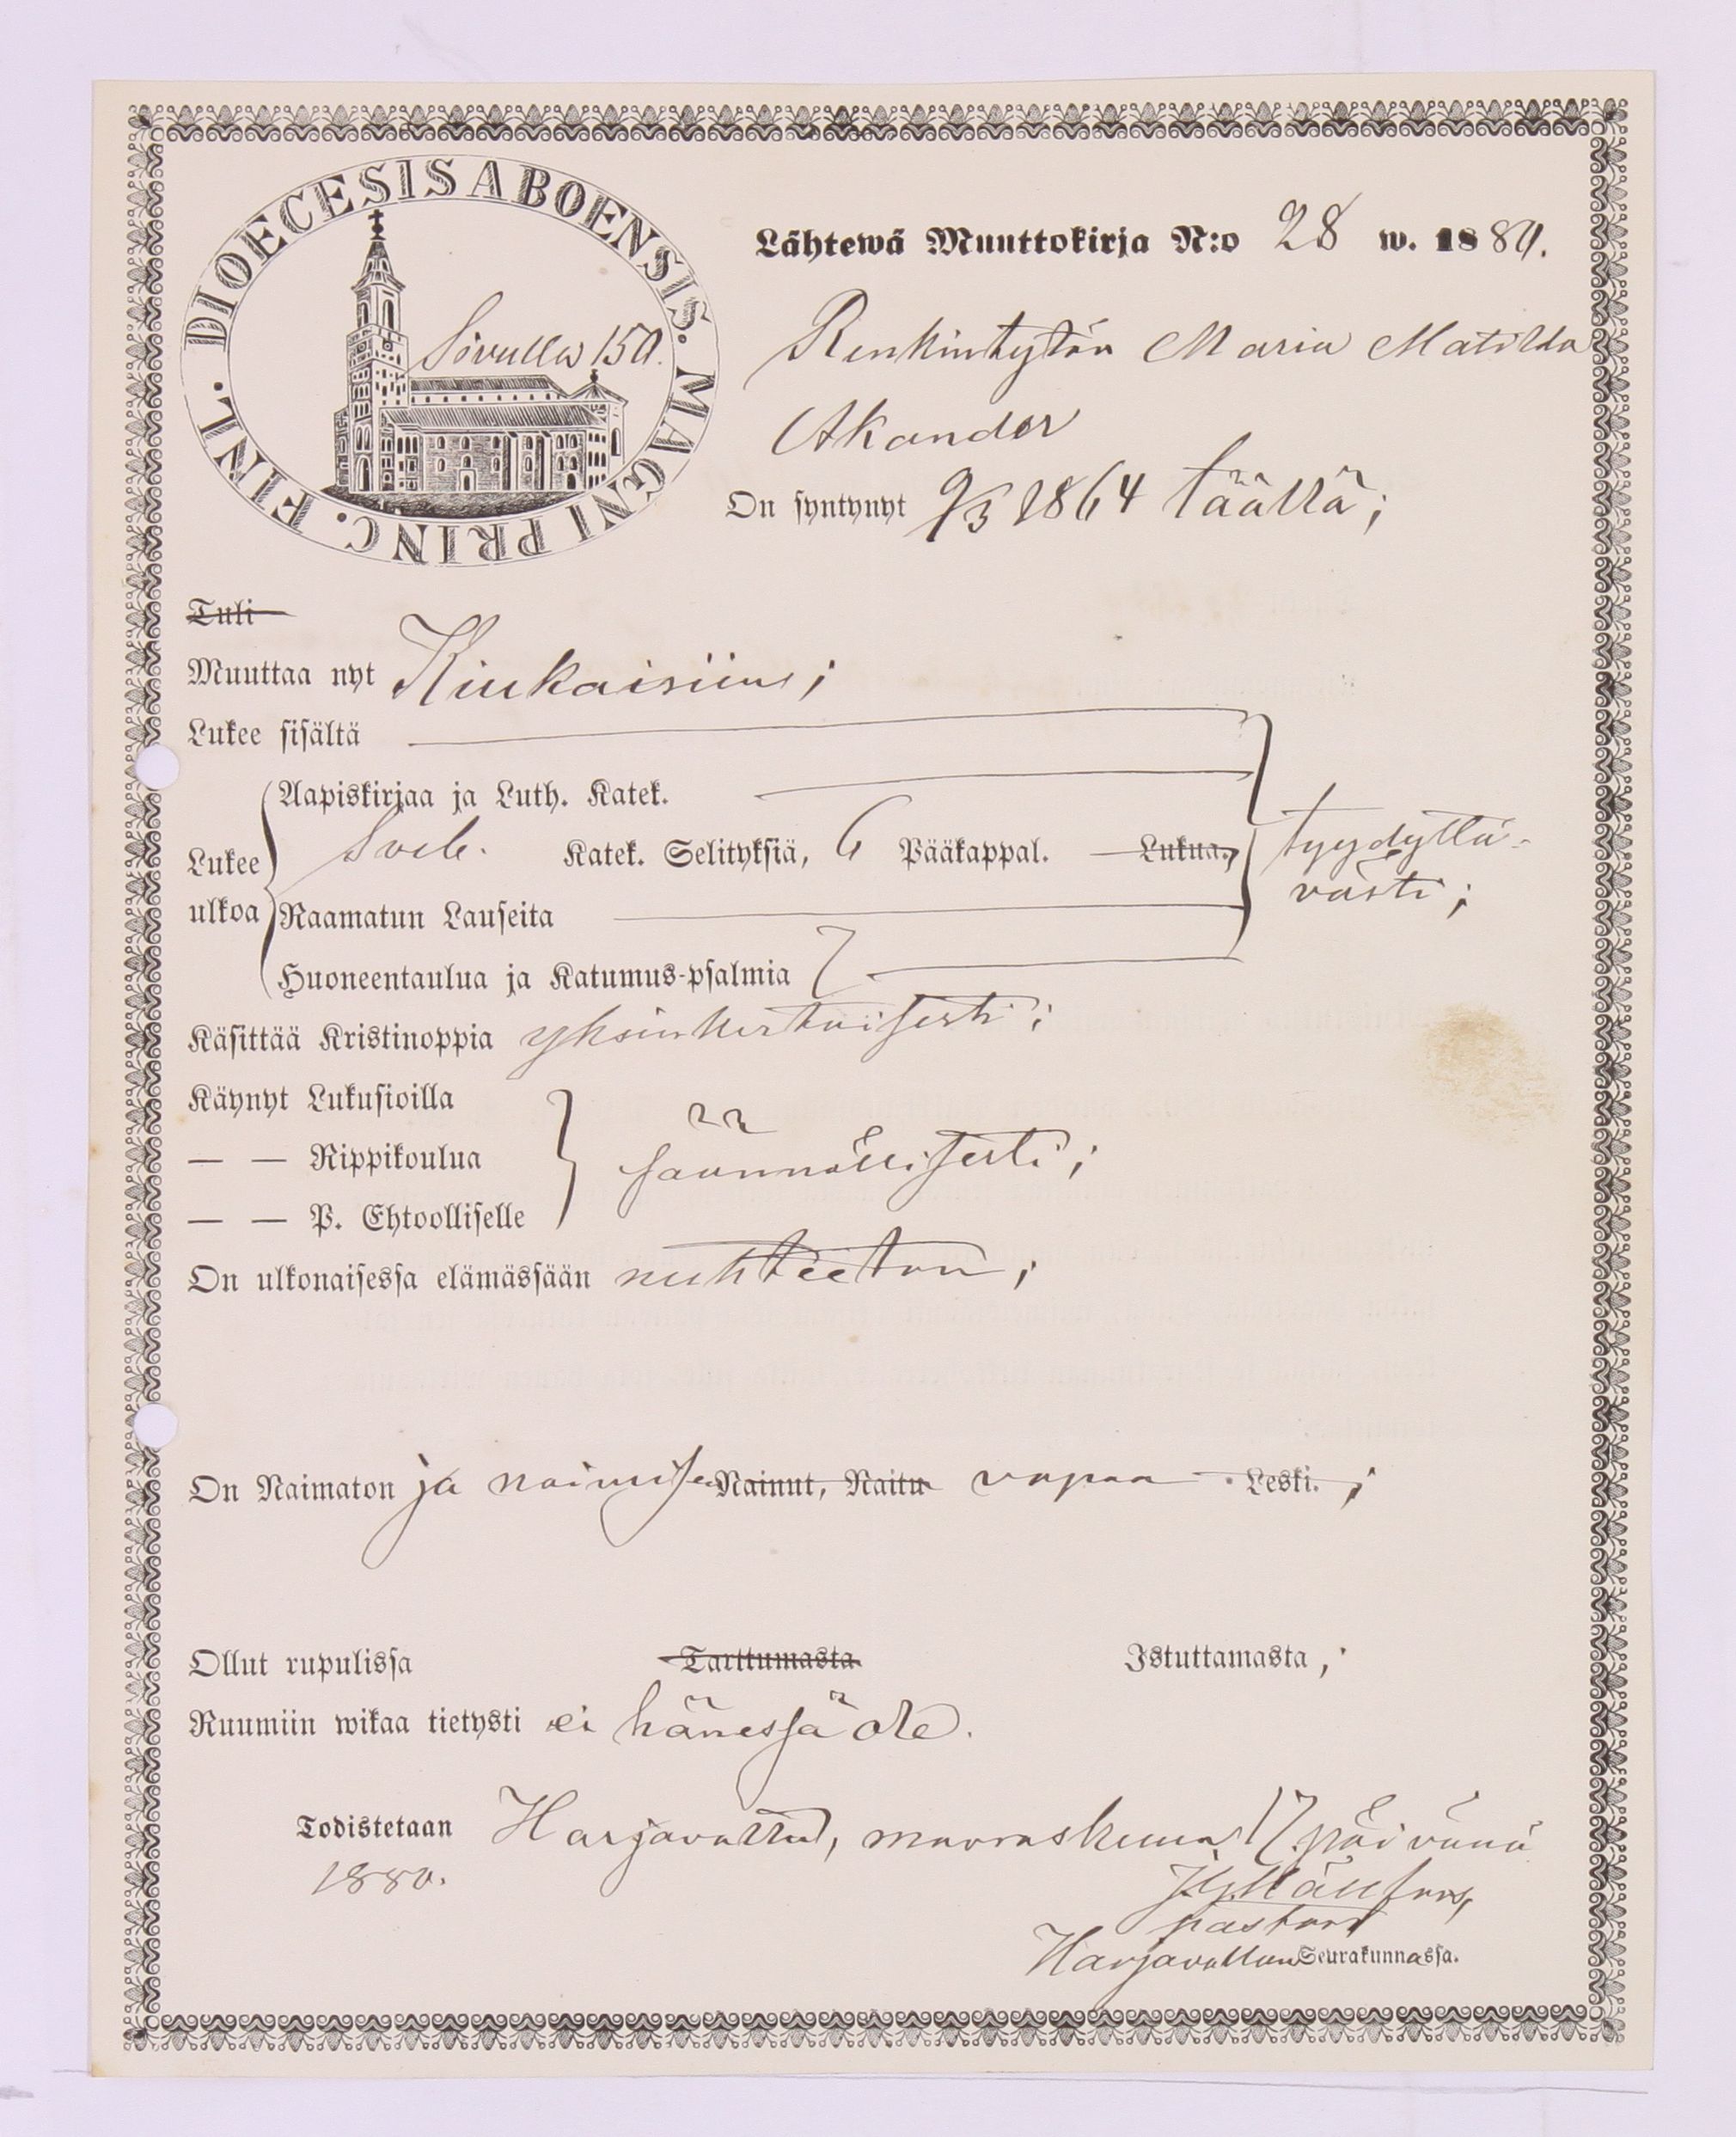 DIOECESIS ABOENSIS. MAGNI PRINC. FINL.
Sivulla 150.
Lähtewä Muuttokirja N:o 28 w. 1880.
Renkintytön Maria Matilda
Akander
On syntynyt 9/3 1864 täällä;
Tuli
Muuttaa nyt Kiukaisiin;
Lukee sisältä
Aapiskirjaa ja Luth. Katek.
Lukee ulkoa
Sveb. Katek. Selityksiä, 6 Pääkappal. Lukua,
tyydyttä-
västi;
Raamatun Lauseita
Huoneentaulua ja Katumus-psalmia 7
Käsittää Kristinoppia yksinkertaisesti;
Käynyt Lukusioilla
— — Rippikoulua säännöllisesti;
— — P. Ehtoolliselle
On ulkonaisessa elämässään nuhteeton;
On Naimaton ja naimisen Nainut, Naitu vapaa Leski. ;
Ollut rupulissa Tarttumasta Istuttamasta, ;
Ruumiin wikaa tietysti ei hänessä ole.
Todistetaan Harjavallud, marraskuun 17 päivänä
1880.
pastori
Harjavallan Seurakunnassa.